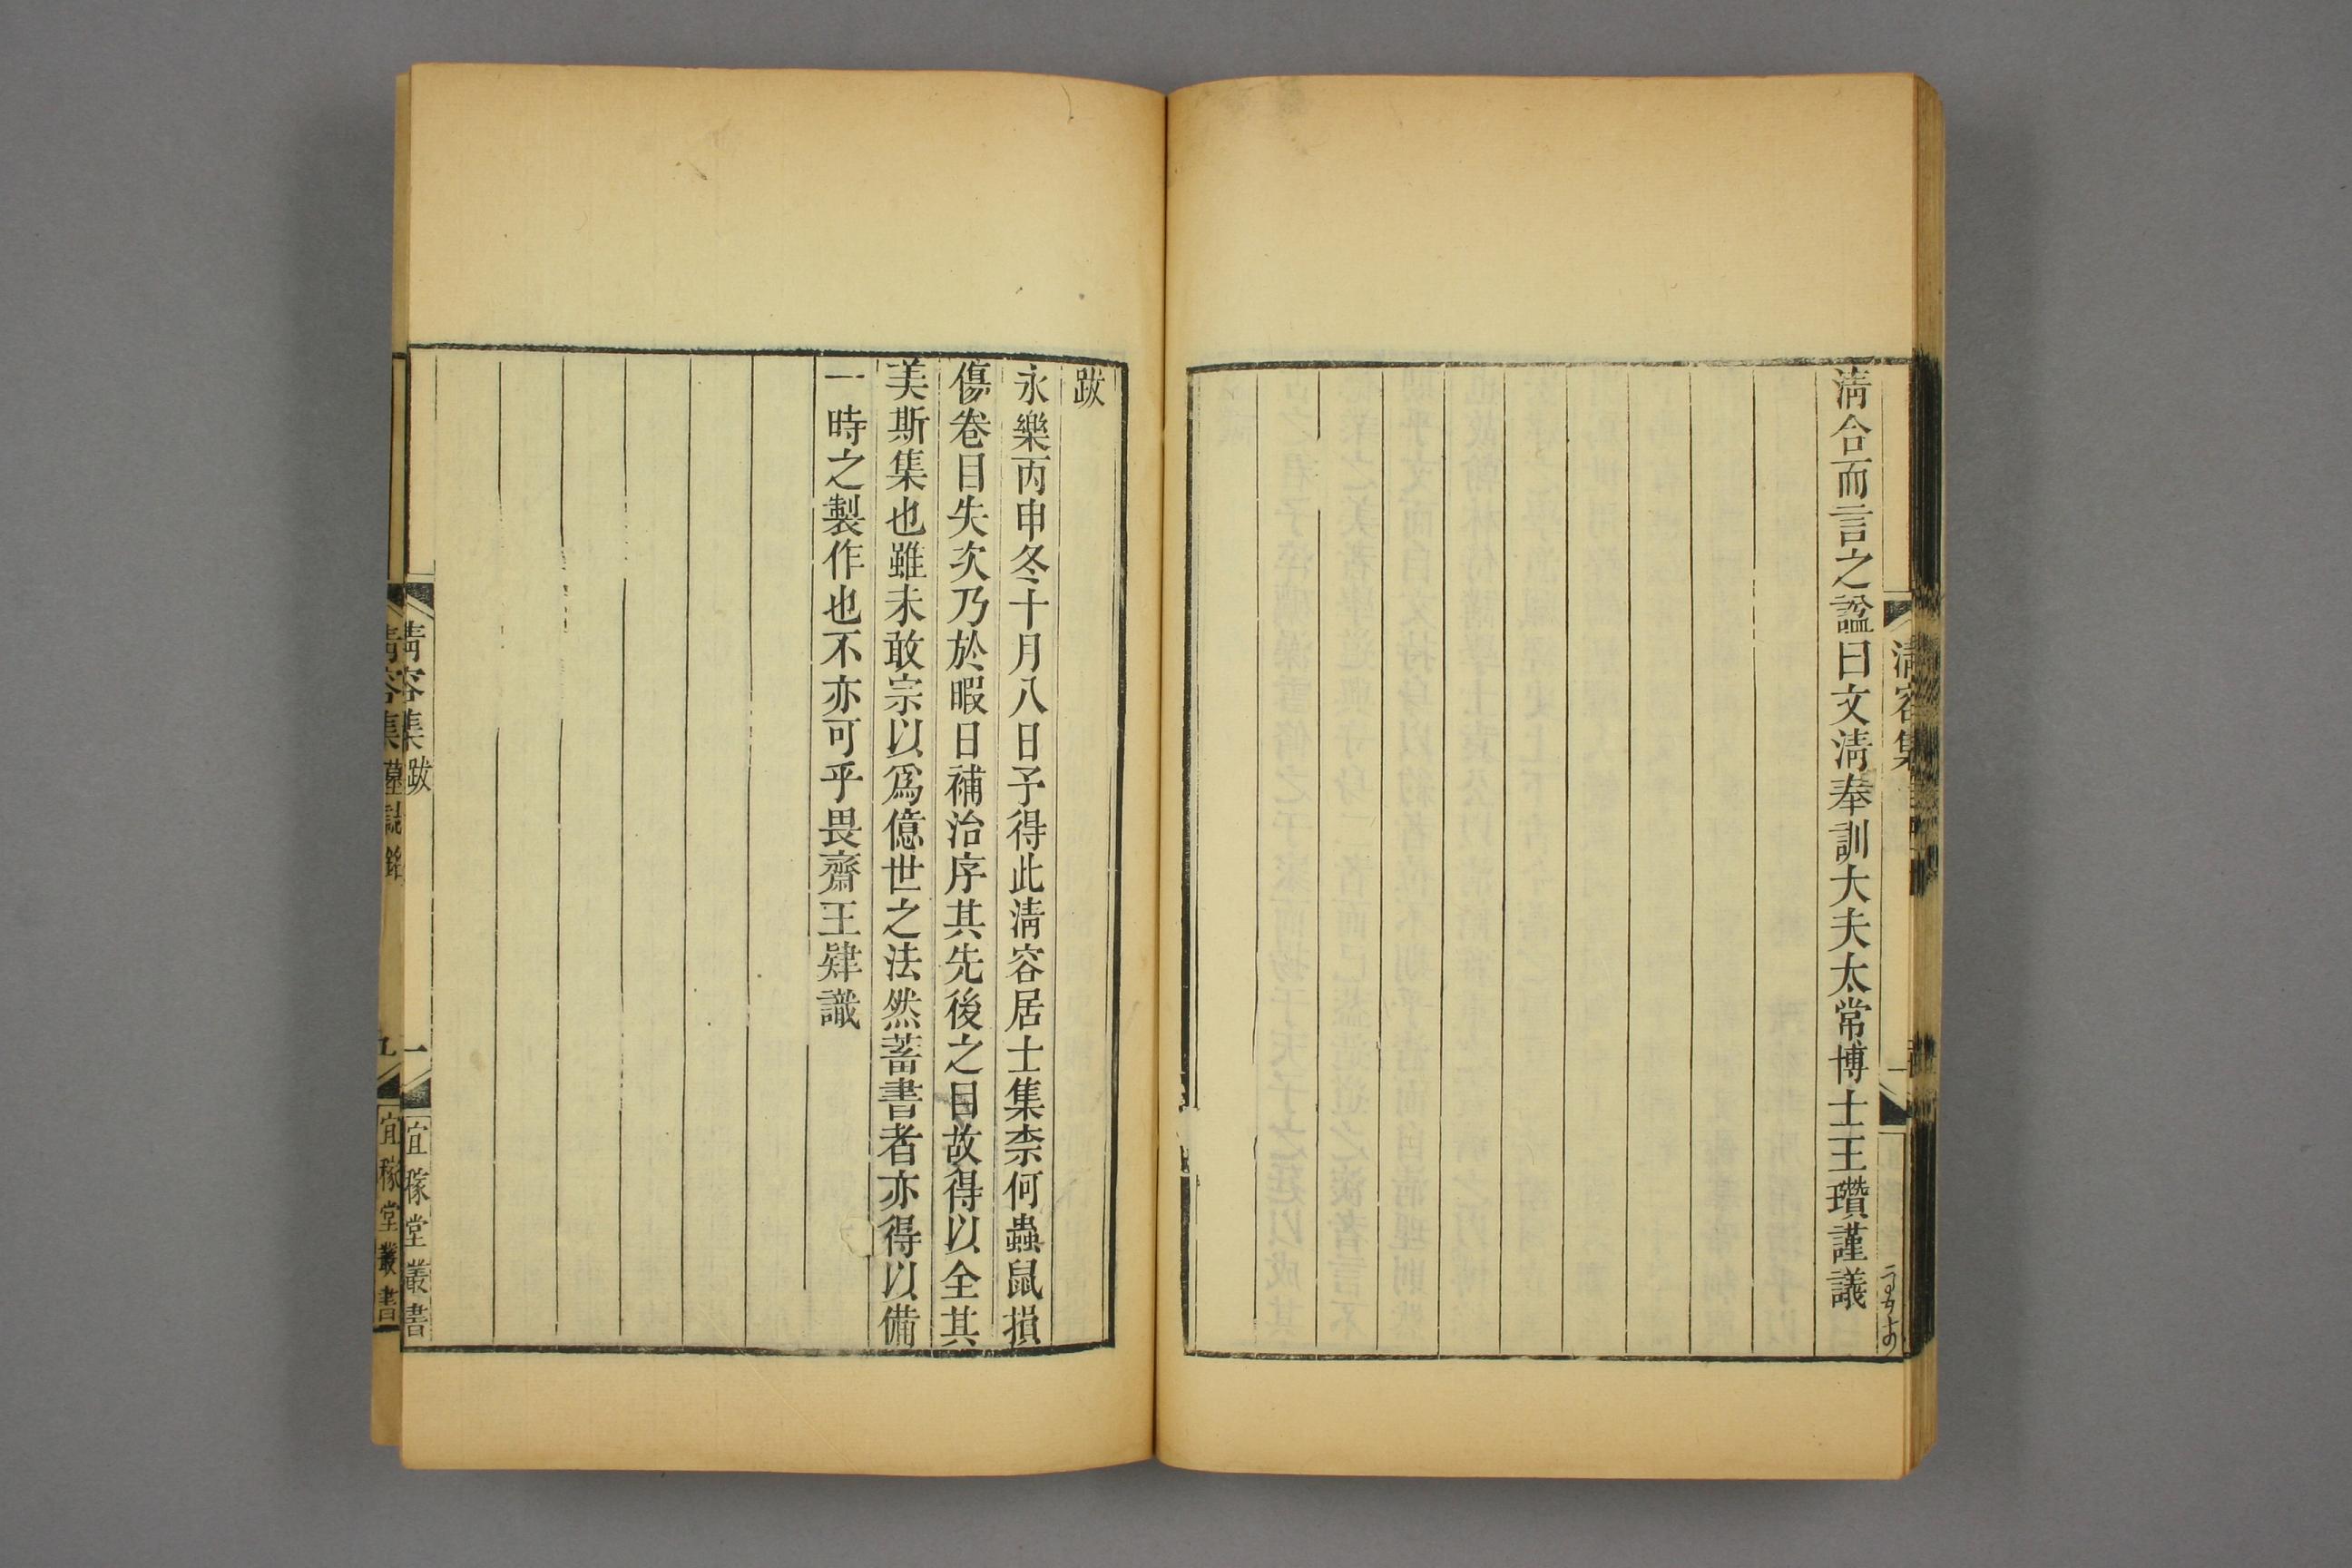 清合而言之謚曰文清奉訓大夫太常博士王瓚謹議
清容集
跋
永樂丙申冬十月八日予得此清容居士集柰何蟲鼠損
傷卷目失次乃於暇日補治序其先後之目故得以全其
美斯集也雖未敢宗以爲億世之法然蓄書者亦得以備
一時之製作也不亦可乎畏齋王肄識
清容集 跋
一
宜稼堂叢書
清容集 墓誌銘
九
宜稼堂叢書